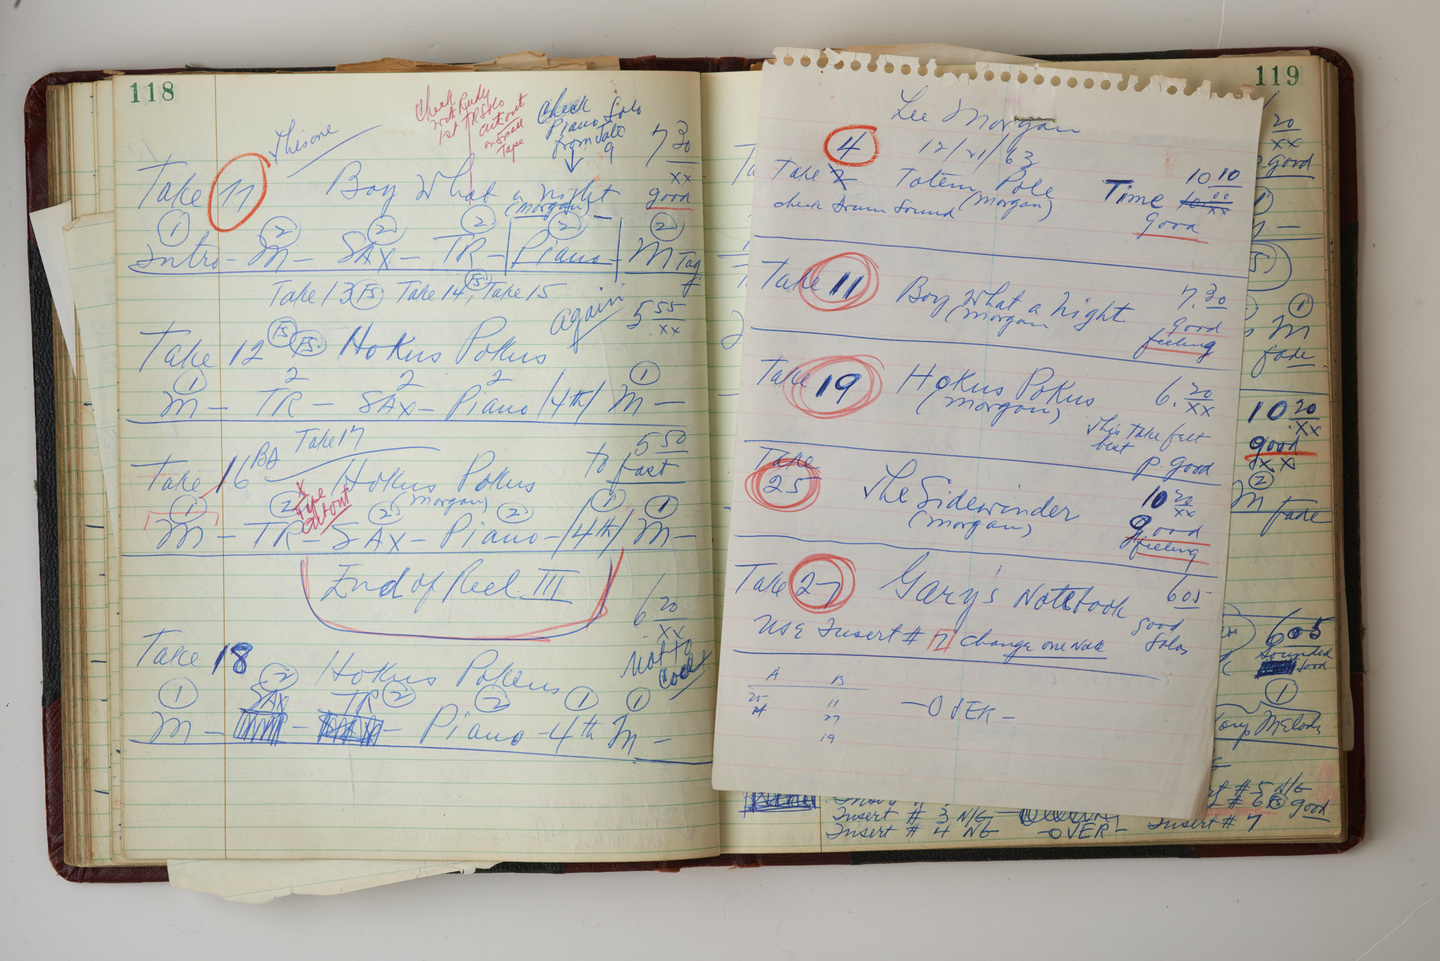 118
Check
with Rudy
1st TR Solo
cut out
on small
Tape
Check
Piano Solo
from Take
9
This one
7 30/xx
good
Take 11 Boy What a Night
(Morgan)
1 2 2 2 2 2
Intro - M - SAX - TR - Piano - M Tag
Take 13 FS Take 14 FS, Take 15
again
5 55/xx
Take 12 FS FS Hokus Pokus
1 2 2 2 1
M - TR - SAX - Piano /4th/ M -
Take 17
5 50
to fast
Take 16 Hokus Pokus
(Morgan)
x Tape
cut out
1 2 2 2 2 1
M - TR - SAX - Piano - /4th/ M -
End of Reel III
6 20/xx
Not to
Cool
Take 18 Hokus Pokus
1 2 2 2 1 1
SAX TR
M - - - Piano - 4th M -
Lee Morgan
12/21/63
4
Take 2 Totem Pole
(Morgan)
Time 10 10
xx
check Drum Sound
good
Take 11 Boy What a Night
(Morgan
7.30
good
feeling
Take 19 Hokus Pokus
(Morgan)
6. 20/xx
this take felt
best
p good
Take
25 The Sidewinder
(Morgan)
10 20/xx
good
feeling
Take 27 Gary's Notebook
605
good
Solos
Use Insert # 7 change one note
A B
25 11
4 27
19
- OVER -
119
20
xx
good
1
M
fade
10 20/xx
good
xx
2
M
fade
605
Sounded
good
1
Melody
Insert # 3 N/G
Insert # 4 NG
- OVER -
# 5 N/G
# 6 FS good
Insert # 7